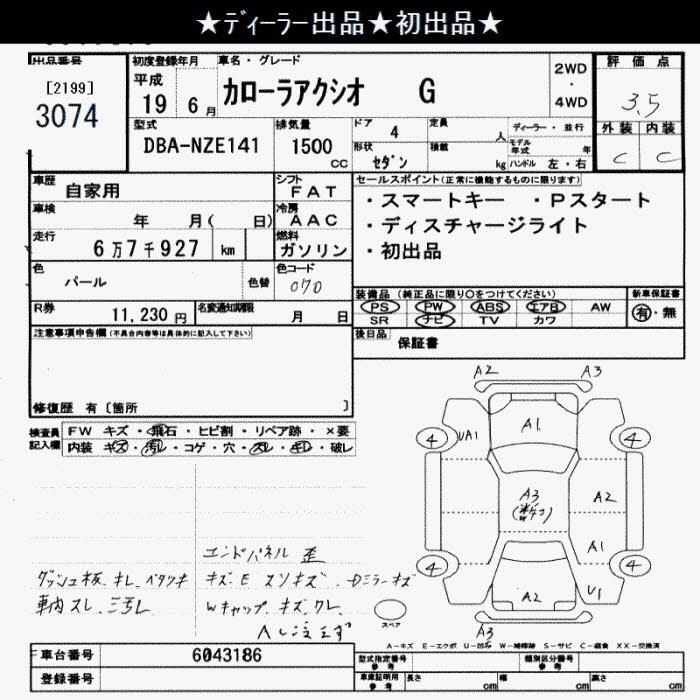 ★ﾃﾞｨｰﾗｰ出品★初出品★
出品番号
[2199]
3074
初度登録年月
平成
19 6月
車名・グレード
カローラアクシオ G
2WD
・
4WD
評価点
3.5
外装 内装
C C
型式
DBA-NZE141
排気量
1500
CC
ドア
4
定員
人
形状
ｾﾀﾞﾝ
積載
kg
ディーラー・並行
モデル年式 年
ハンドル 左・右
車歴
自家用
シフト
FAT
車検
年 月( 日)
冷房
AAC
走行
6万7千927 km
燃料
ガソリン
色
パール
色替
色コード
070
R券
11,230 円
名変通知期限
月 日
セールスポイント(正常に機能するものに限ります)
・スマートキー ・Pスタート
・ディスチャージライト
・初出品
装備品 (純正品に限り○をつけてください)
PS PW ABS エアB AW
SR ナビ TV カワ
新車保証書
有・無
後日品
保証書
注意事項申告欄(不具合内容等は具体的に記入して下さい)
修復歴 有〔箇所 〕
検査員記入欄
FW キズ・飛石・ヒビ割・リペア跡・×要
内装 キズ・汚レ・コゲ・穴・スレ・キレ・破レ
A2 A3
A1
4 UA1 4
A3
A2
A1
4 4
A2
U1
A3
スペア
エンドパネル 歪
ダッシュ板、キレ、ベタツキ
キズ.E スソキズ、Dミラーキズ
車内スレ、ニゴレ
Wキャップ、キズ、クレ、
A-キズ E-エクボ U-凹み W-補修跡 S-サビ C-腐食 XX-交換済
車台番号
6043186
登録番号
型式指定番号
参考
類別区分番号
参考
車庫証明用
参考
長さ cm
幅 cm
高さ cm